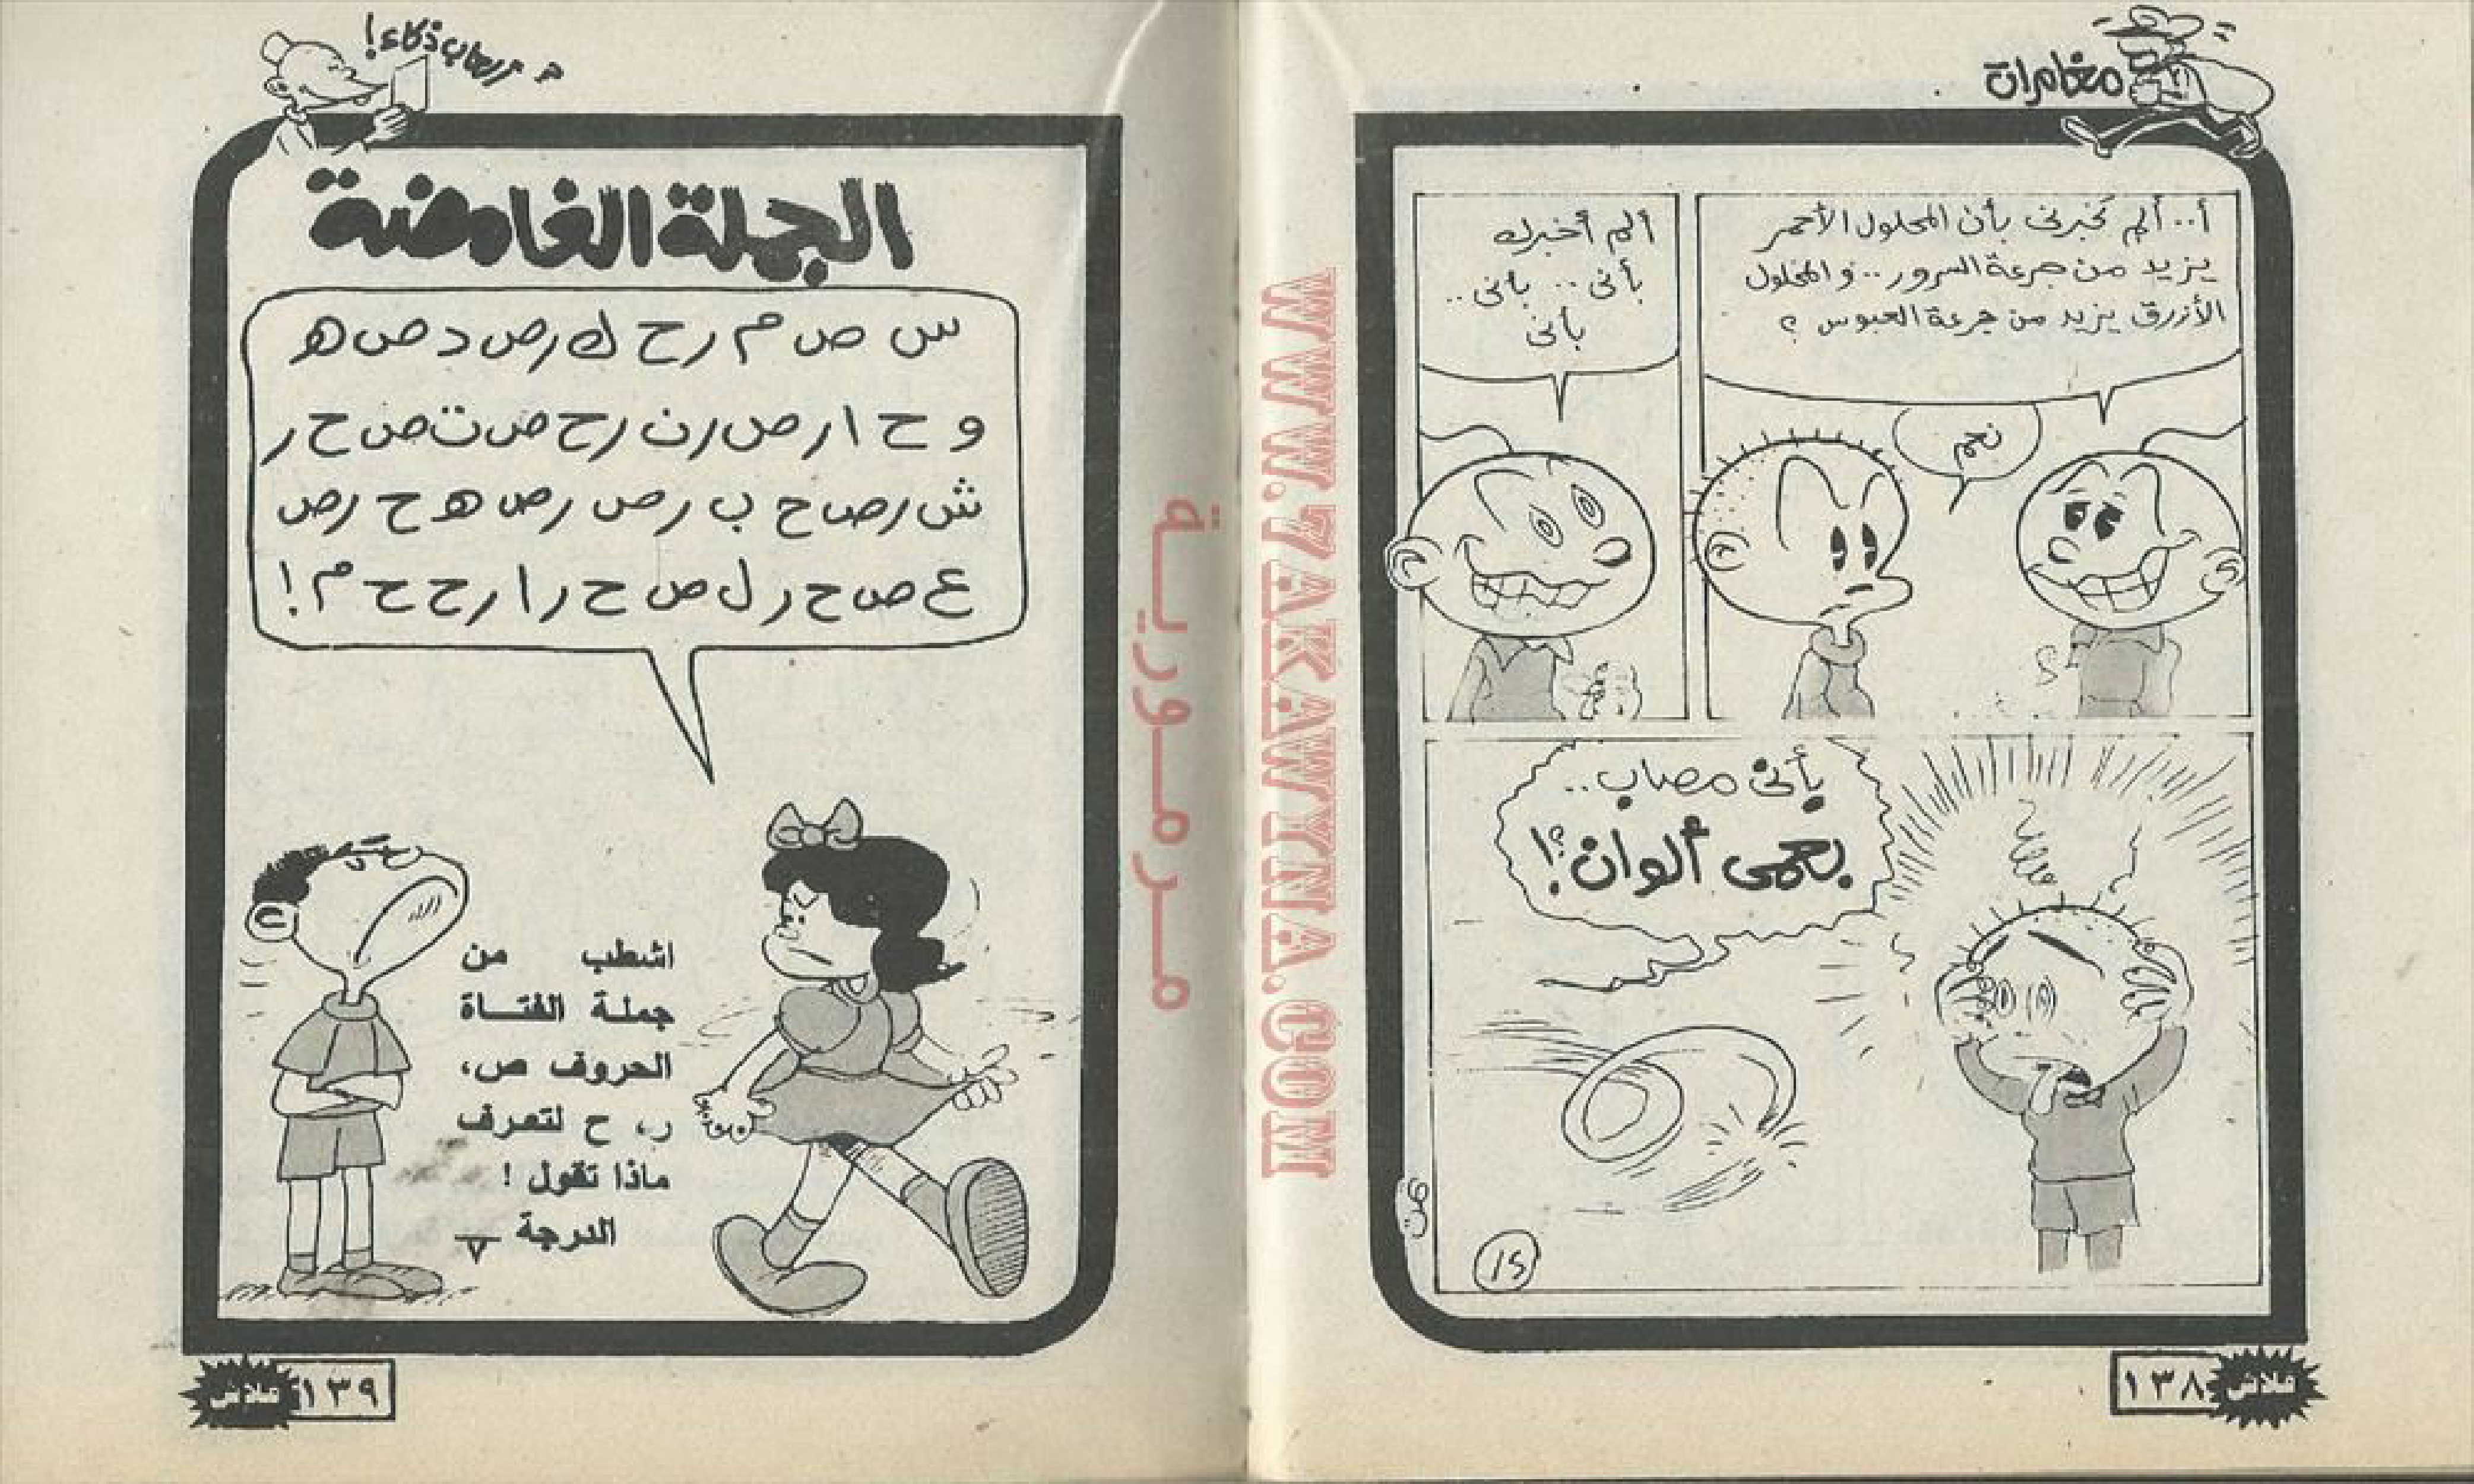 مغامرات
أ.. ألم تخبرنى بأن المحلول الأحمر
يزيد من جرعة السرور.. والمحلول
الأزرق يزيد من جرعة العبوس ؟
نعم
ألم أخبرك
بأنى.. بانى..
بأنى
بأنى مصاب..
بعمى ألوان؟!
١٣٨ فلاش
WWW.7AKAWYNA.COM
مـرمـوريـة
ذكاء!
الجملة الغامضة
س ص م ر ح ك ر ص د ص ه
و ح ا ر ص ر ن ر ح ص ت ص ح ر
ش ر ص ح ب ر ص ر ص ه ح ر ص
ع ص ح ر ل ص ح ر ا ر ح ح م !
اشطب من
جملة الفتـاة
الحروف ص،
ر، ح لتعرف
ماذا تقول !
الدرجة ٧
١٣٩ فلاش